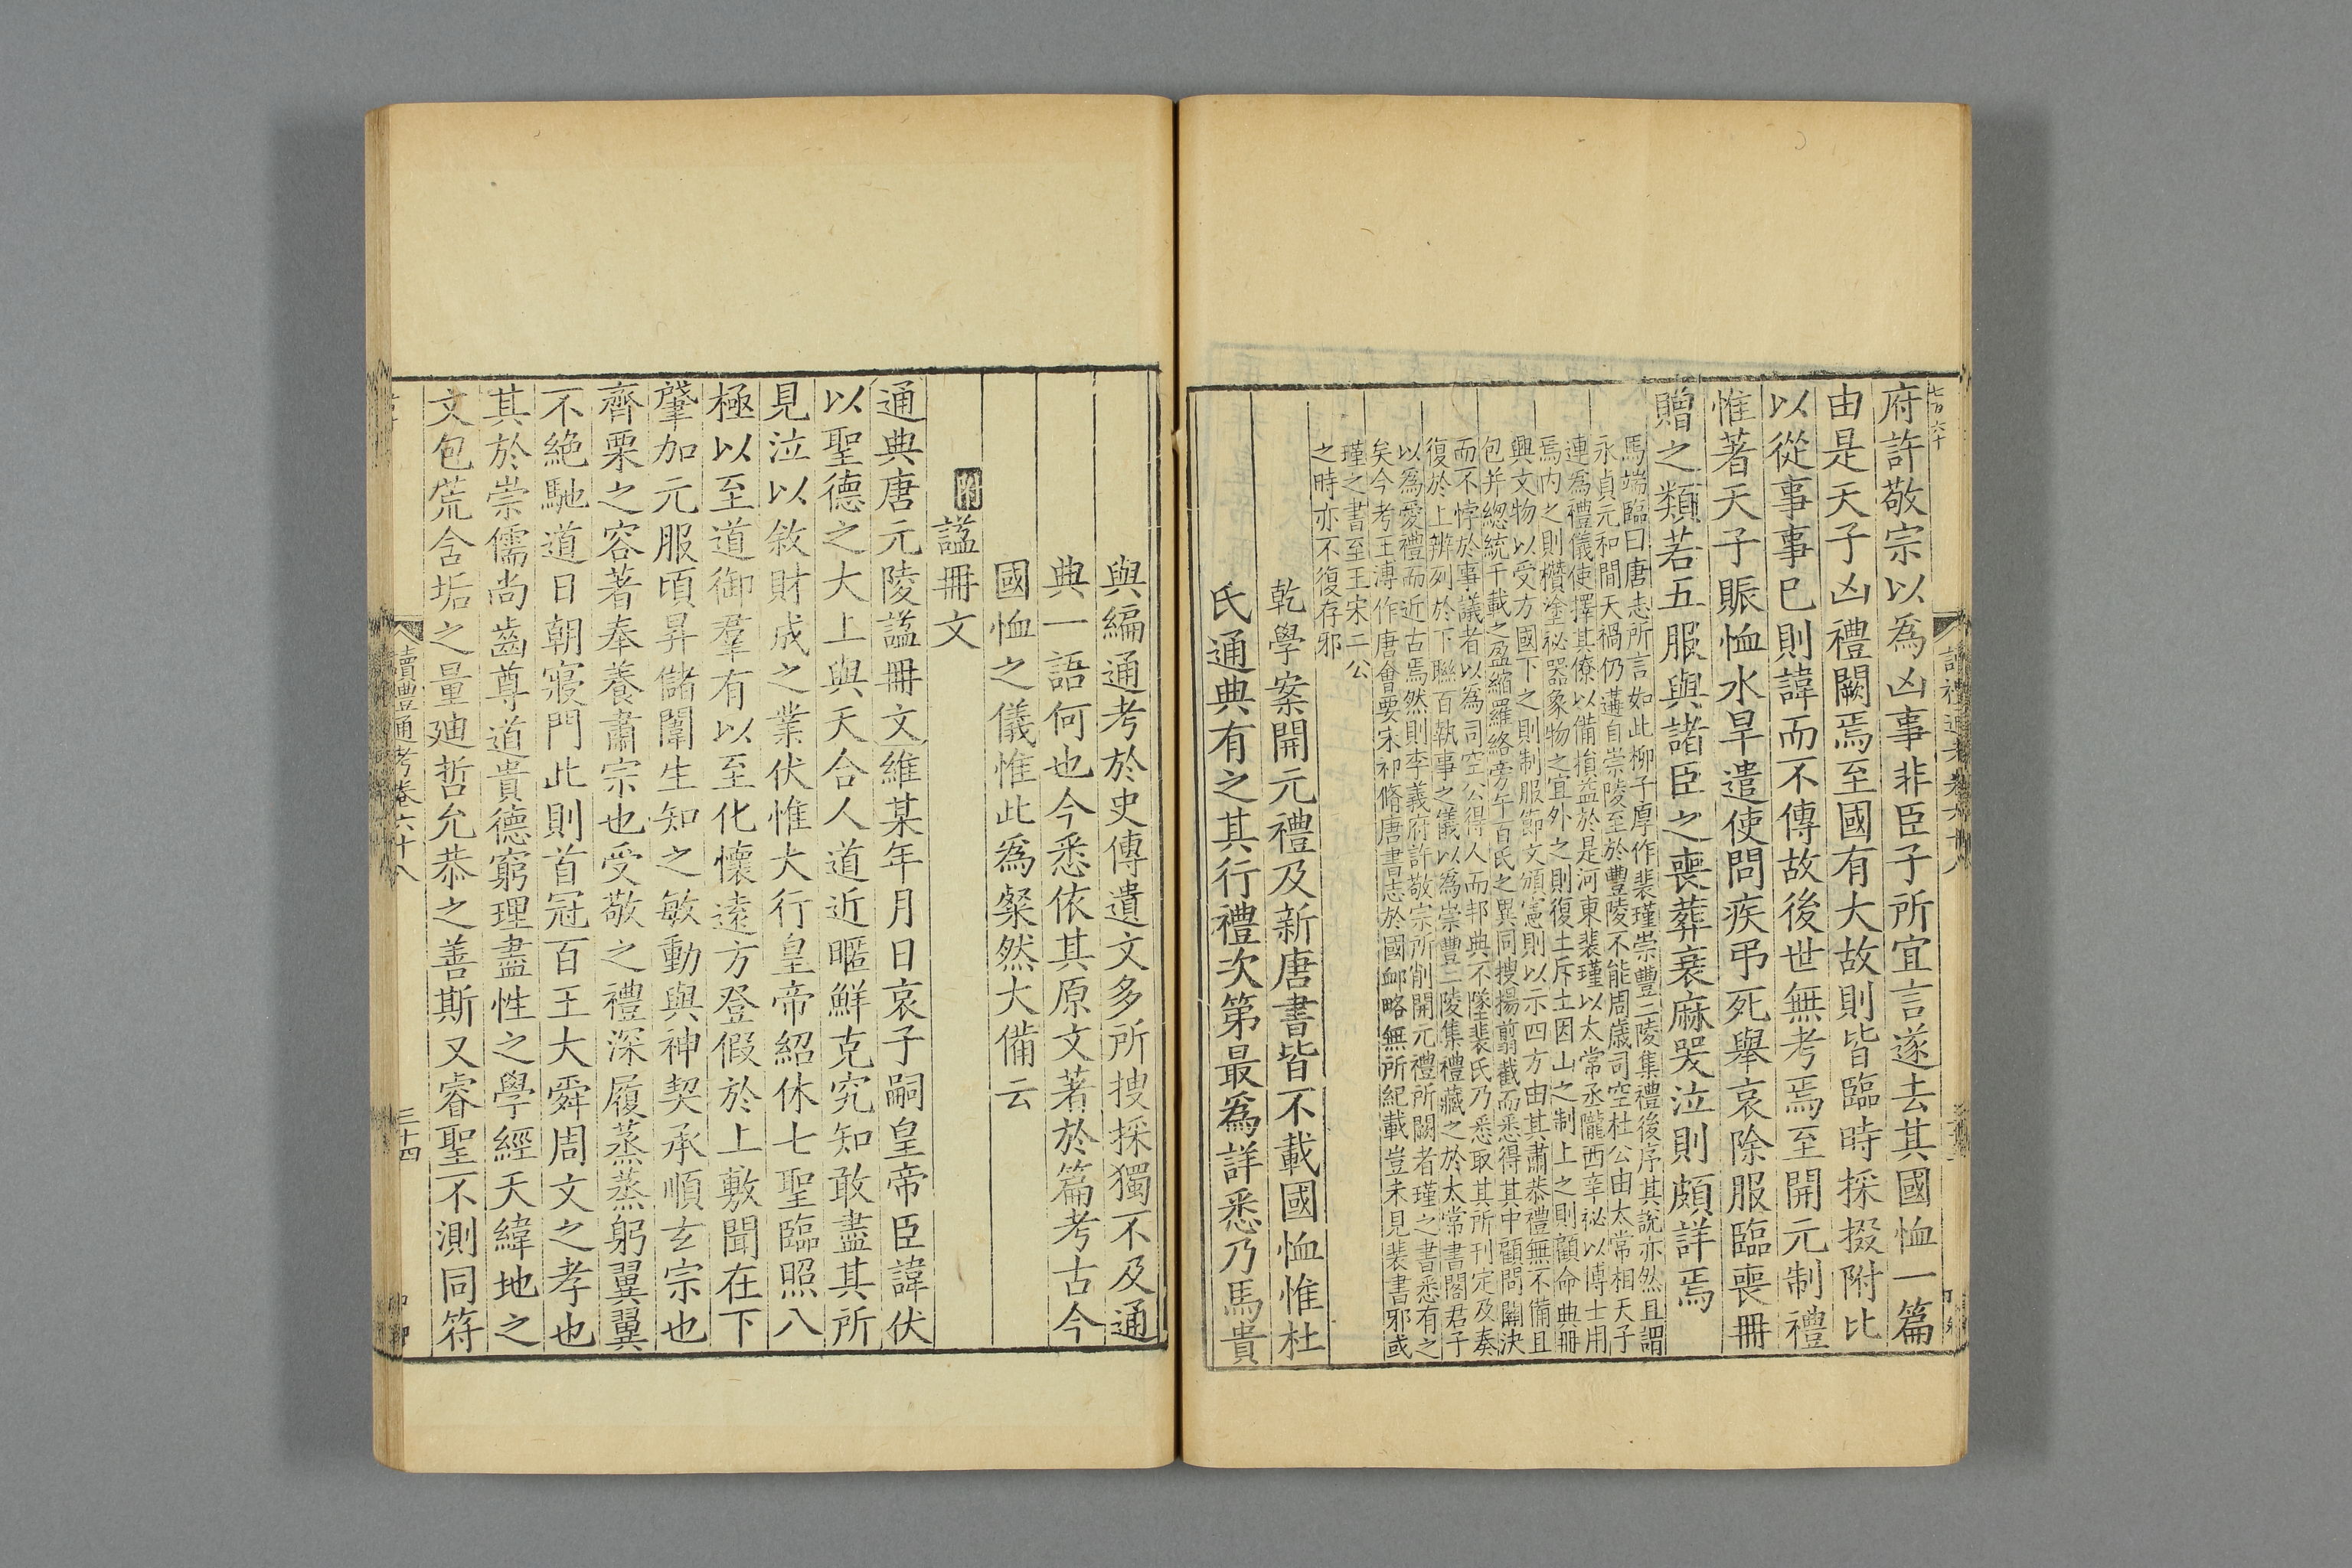 府許敬宗以爲凶事非臣子所宜言遂去其國恤一篇
由是天子凶禮闕焉至國有大故則皆臨時採掇附比
以從事事已則諱而不傳故後世無考焉至開元制禮
惟著天子賑恤水旱遣使問疾弔死舉哀除服臨喪冊
贈之類若五服與諸臣之喪葬衰麻哭泣則頗詳焉
馬端臨曰唐志所言如此柳子厚作裴瑾崇豐二陵集禮後序其説亦然且謂
永貞元和間天禍仍遘自崇陵至於豐陵不能周歲司空杜公由太常相天子
連爲禮儀使擇其僚以備損益於是河東裴瑾以太常丞隴西辛祕以博士用
焉内之則攢塗祕器象物之宜外之則復土斥上因山之制上之則顧命典冊
興文物以受方國下之則制服節文頒憲則以示四方由其肅恭禮無不備且
包并總統千載之盈縮羅絡旁午百氏之異同搜揚翦截而悉得其中顧問關決
而不悖於事議者以為司空公得人而邦典不墜裴氏乃悉取其所刊定及奏
復於上辨列於下聯百執事之儀以為崇豐二陵集禮藏之於太常書閣君子
以為愛禮而近古焉然則李義府許敬宗所削開元禮所闕者瑾之書悉有之
矣今考王溥作唐會要宋祁脩唐書志於國卹略無所紀載豈未見裴書邪或
瑾之書至王宋二公
之時亦不復存邪
乾學案開元禮及新唐書皆不載國恤惟杜
氏通典有之其行禮次第最爲詳悉乃馬貴
與編通考於史傳遺文多所搜採獨不及通
典一語何也今悉依其原文著於篇考古今
國恤之儀惟此爲粲然大備云
附諡冊文
通典唐元陵諡冊文維某年月日哀子嗣皇帝臣諱伏
以聖德之大上與天合人道近暱鮮克究知敢盡其所
見泣以敘財成之業伏惟大行皇帝紹休七聖臨照八
極以至道御羣有以至化懷遠方登假於上敷聞在下
肇加元服頃昇儲闈生知之敏動與神契承順玄宗也
齊栗之容著奉養肅宗也受敬之禮深履蒸蒸躬翼翼
不絶馳道日朝寢門此則首冠百王大舜周文之孝也
其於崇儒尚齒尊道貴德窮理盡性之學經天緯地之
文包荒含垢之量廸哲允恭之善斯又睿聖不測同符
讀禮通考卷六十八
三十四